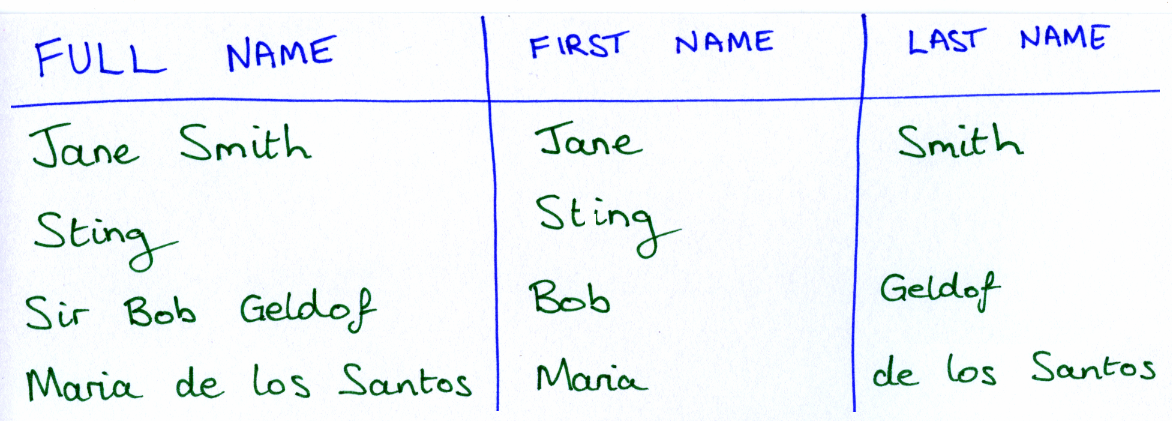 FULL NAME FIRST NAME LAST NAME
Jane Smith Jane Smith
Sting Sting
Sir Bob Geldof Bob Geldof
Maria de los Santos Maria de los Santos